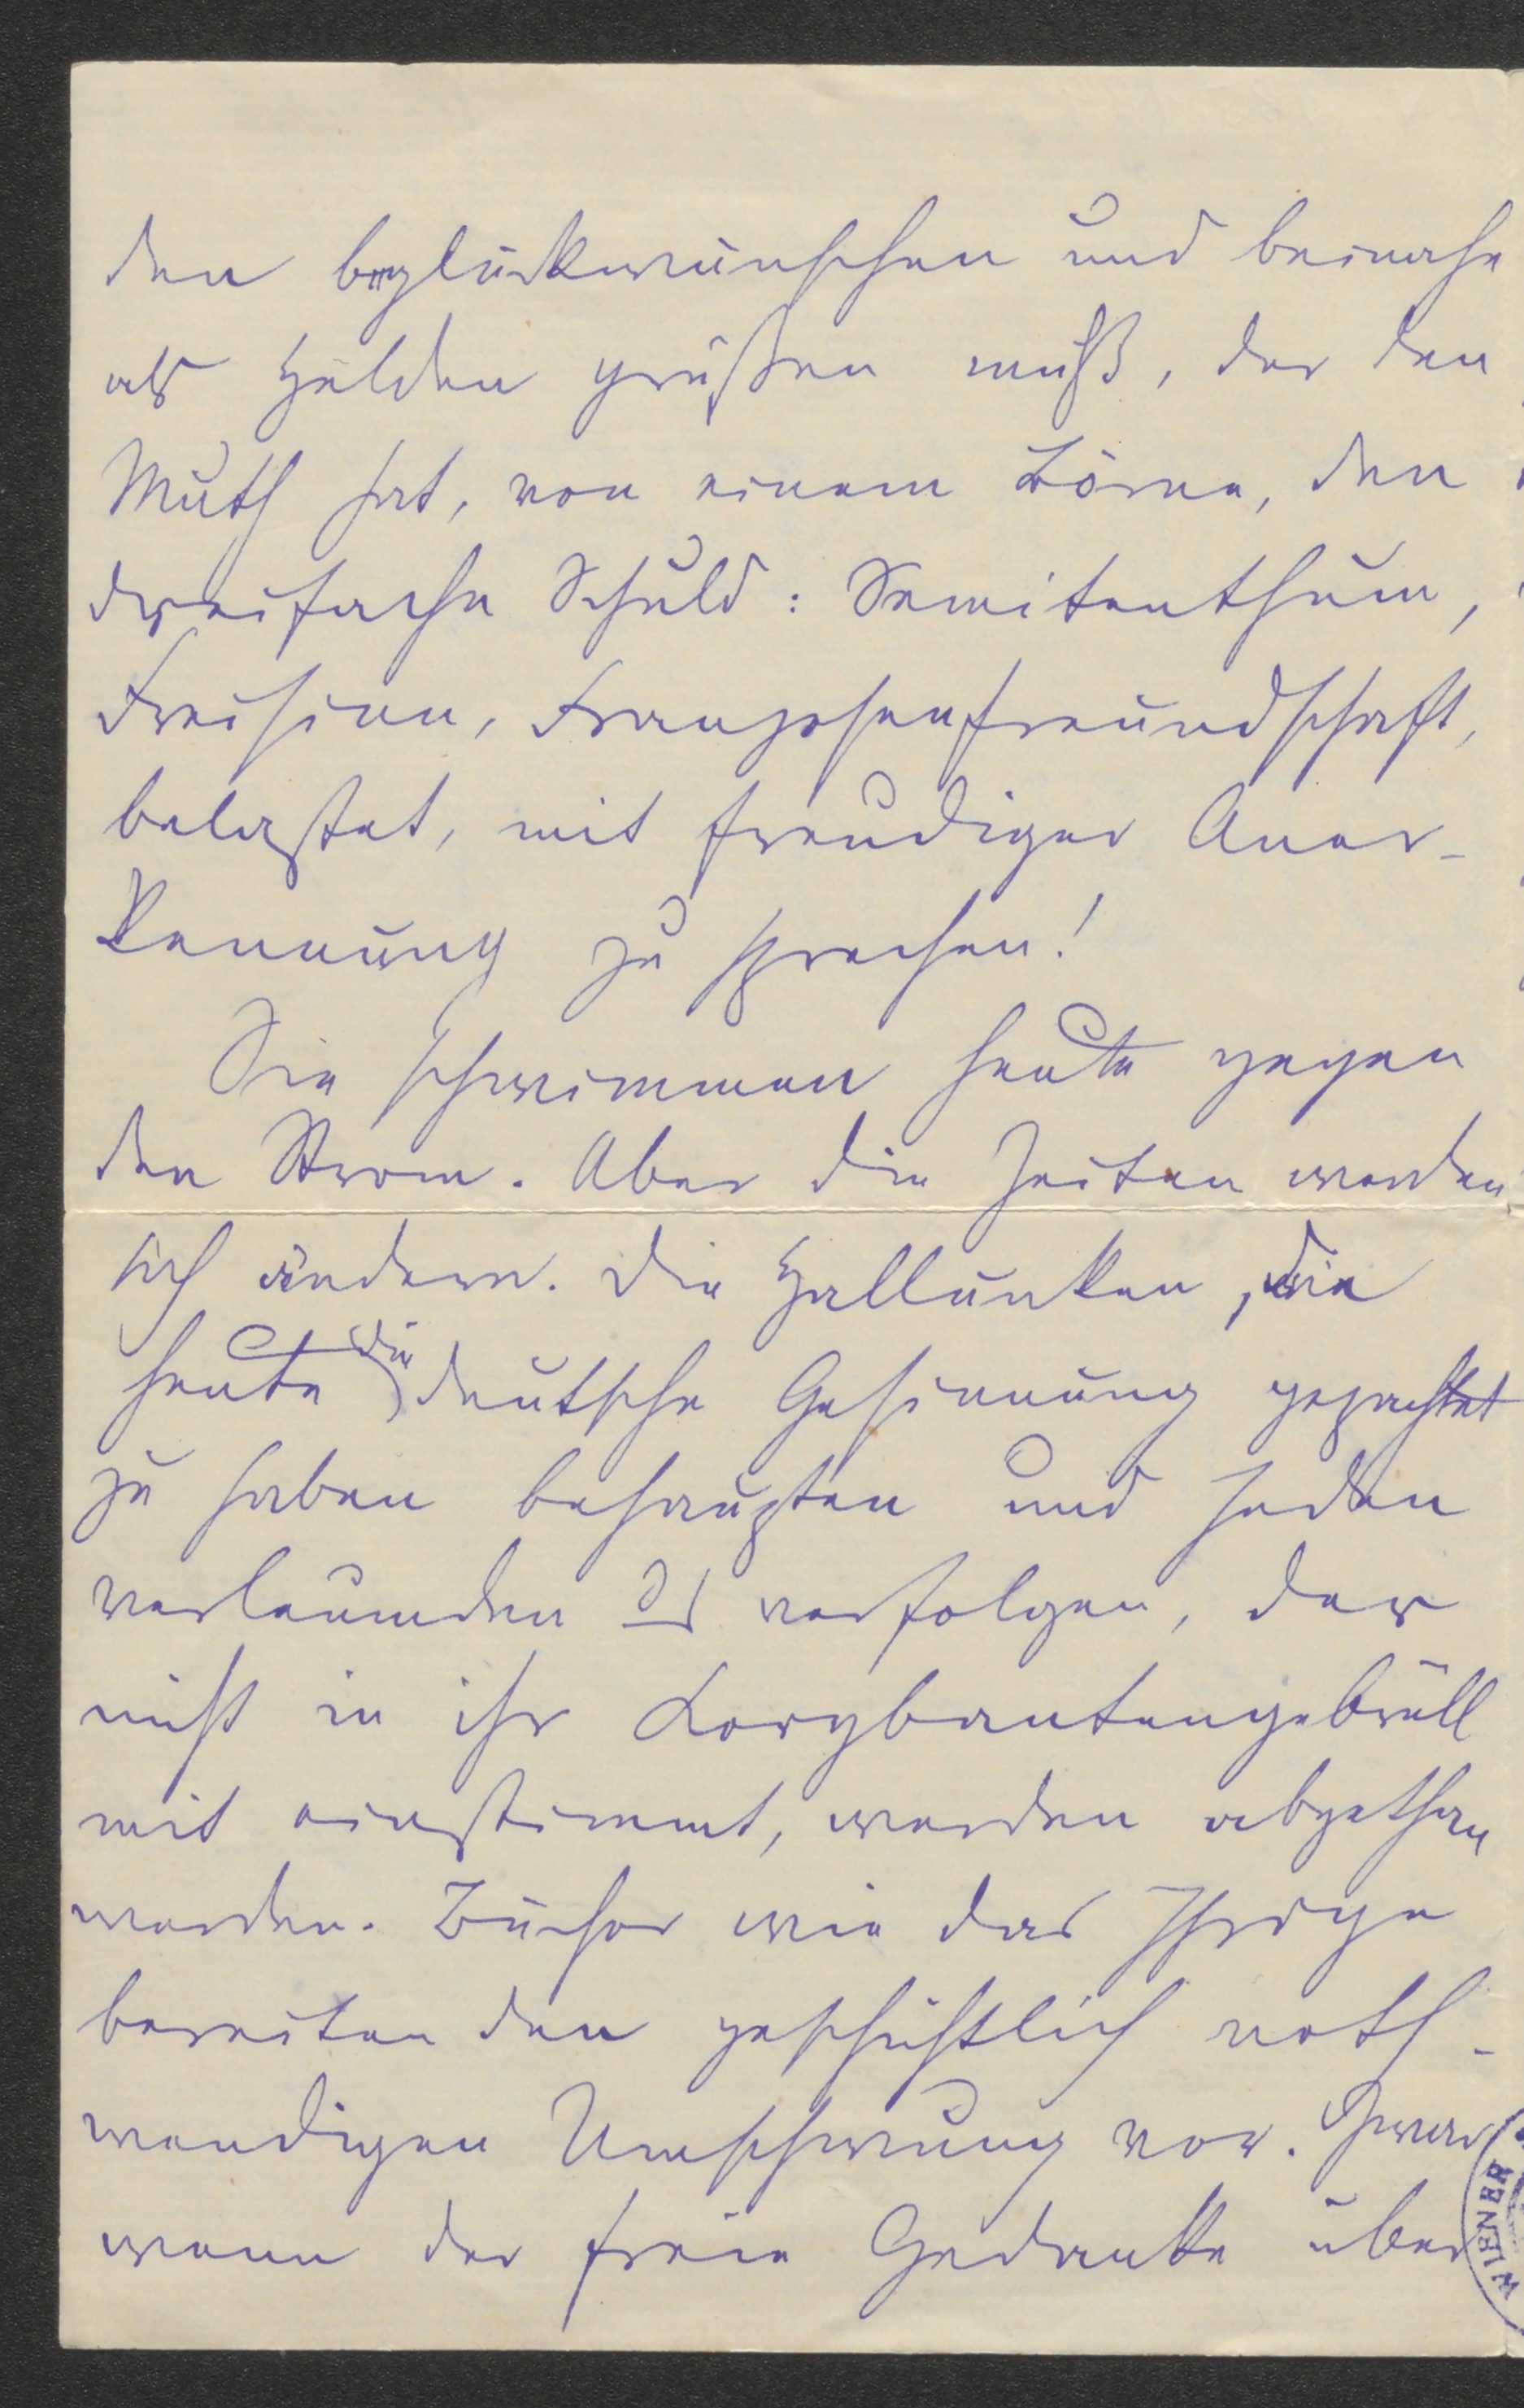 den beglückwünschen und beinahe
als Helden grüßen muß, der den
Muth hat, von einem Börne, den
dreifache Schuld: Semitenthum,
Freisinn, Franzosenfreundschaft,
belastet, mit freudiger Aner-
kennung zu sprechen!
Sie schwimmen heute gegen
den Strom. Aber die Zeiten werden
sich ändern. Die Hallunken, die
heute die deutsche Gesinnung gepachtet
zu haben behaupten und jeden
verleumden & verfolgen, der
nicht in ihr Korybantengebrüll
mit einstimmt, werden abgethan
werden. Bücher wie das Ihrige
bereiten den geschichtlich noth-
wendigen Umschwung vor. Zwar
wann der freie Gedanke über
WIENER